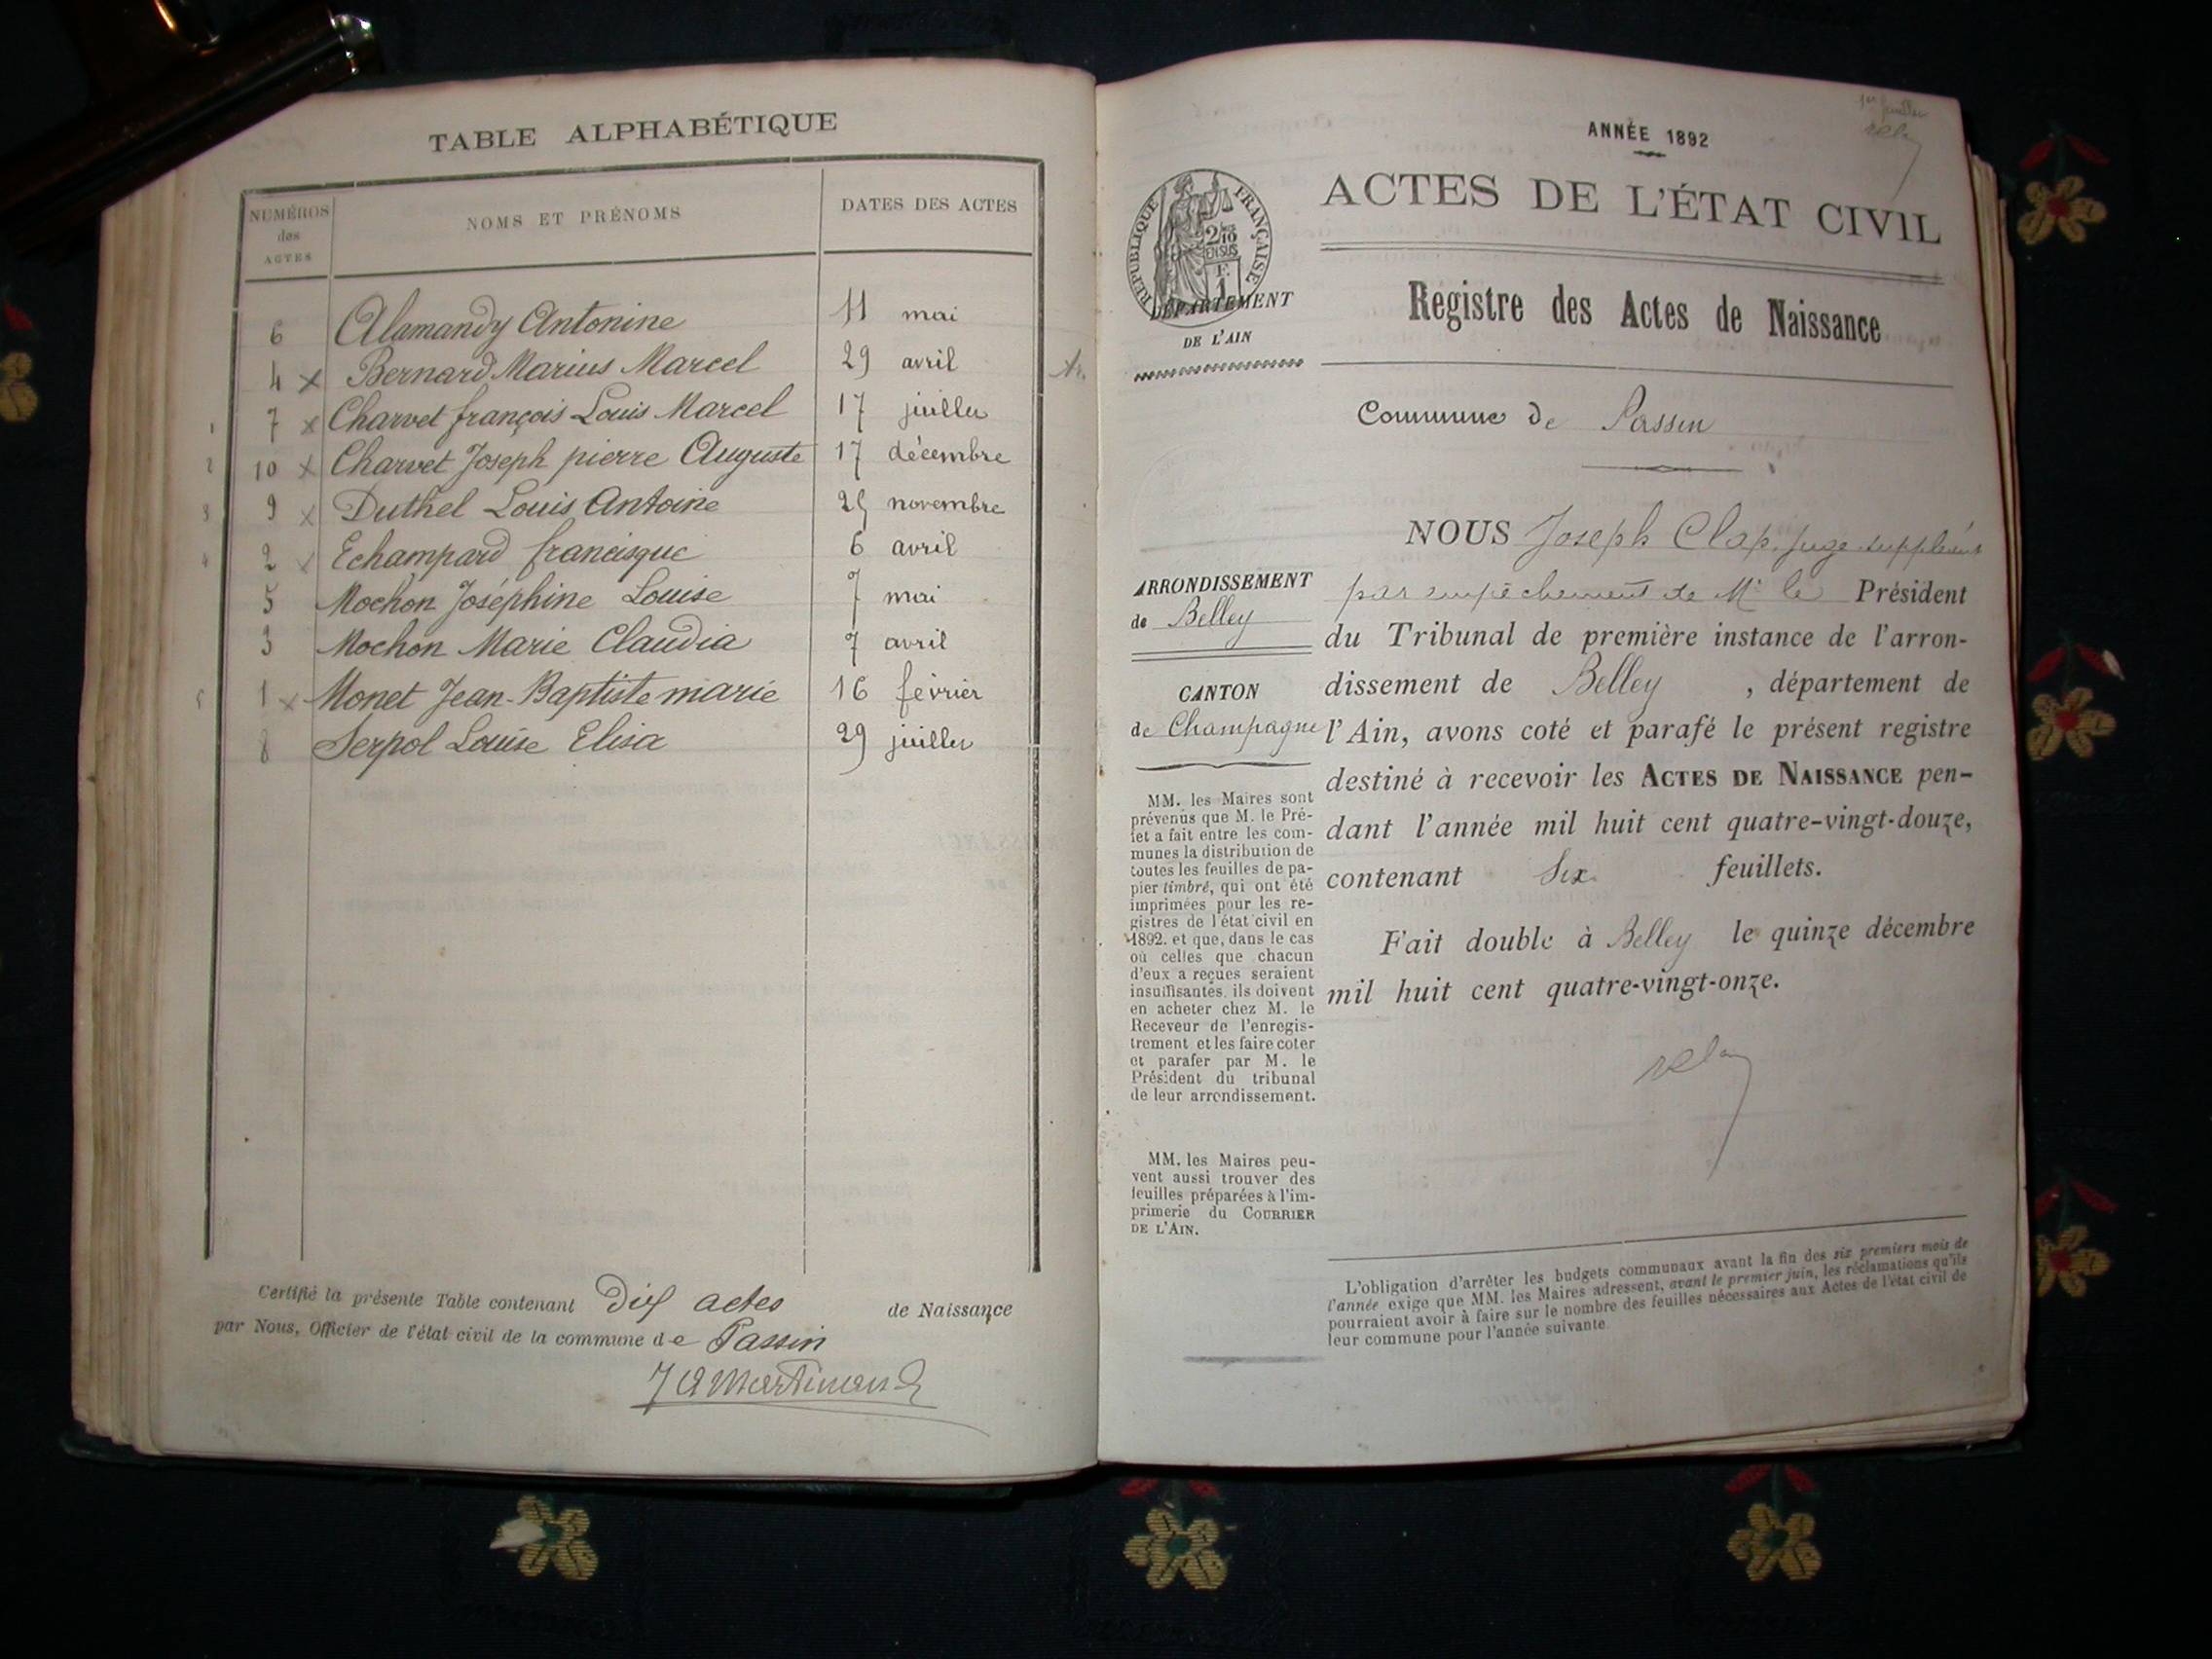 TABLE ALPHABÉTIQUE
NUMÉROS des ACTES
NOMS ET PRÉNOMS
DATES DES ACTES
6 Alamandy Antonine 11 mai
4 x Bernard Marius Marcel 29 avril
1 7 x Charvet françois Louis Marcel 17 juillet
2 10 x Charvet Joseph pierre Auguste 17 décembre
3 9 x Duthel Louis Antoine 25 novembre
4 2 x Echampard francisque 6 avril
5 Mochon Joséphine Louise 7 mai
3 Mochon Marie Claudia 7 avril
5 1 x Monet Jean-Baptiste marie 16 février
8 Serpol Louise Elisa 29 juillet
Certifié la présente Table contenant Dix actes de Naissance
par Nous, Officier de l'état civil de la commune de Passin
Martinand
1er feuillet
ANNÉE 1892
ACTES DE L'ÉTAT CIVIL
RÉPUBLIQUE FRANÇAISE
2/10 EN SUS
F. 1
DÉPARTEMENT
DE L'AIN
Registre des Actes de Naissance
Commune de Passin
ARRONDISSEMENT
de Belley
CANTON
de Champagne
MM. les Maires sont
prévenus que M. le Pré-
fet a fait entre les com-
munes la distribution de
toutes les feuilles de pa-
pier timbré, qui ont été
imprimées pour les re-
gistres de l'état civil en
1892, et que, dans le cas
où celles que chacun
d'eux a reçues seraient
insuffisantes, ils doivent
en acheter chez M. le
Receveur de l'enregis-
trement et les faire coter
et parafer par M. le
Président du tribunal
de leur arrondissement.
MM. les Maires peu-
vent aussi trouver des
feuilles préparées à l'im-
primerie du COURRIER
DE L'AIN.
NOUS Joseph Clap, juge suppléant
par empêchement de Mr le Président
du Tribunal de première instance de l'arron-
dissement de Belley, département de
l'Ain, avons coté et parafé le présent registre
destiné à recevoir les ACTES DE NAISSANCE pen-
dant l'année mil huit cent quatre-vingt-douze,
contenant Six feuillets.
Fait double à Belley le quinze décembre
mil huit cent quatre-vingt-onze.
L'obligation d'arrêter les budgets communaux avant la fin des six premiers mois de
l'année exige que MM. les Maires adressent, avant le premier juin, les réclamations qu'ils
pourraient avoir à faire sur le nombre des feuilles nécessaires aux Actes de l'état civil de
leur commune pour l'année suivante.